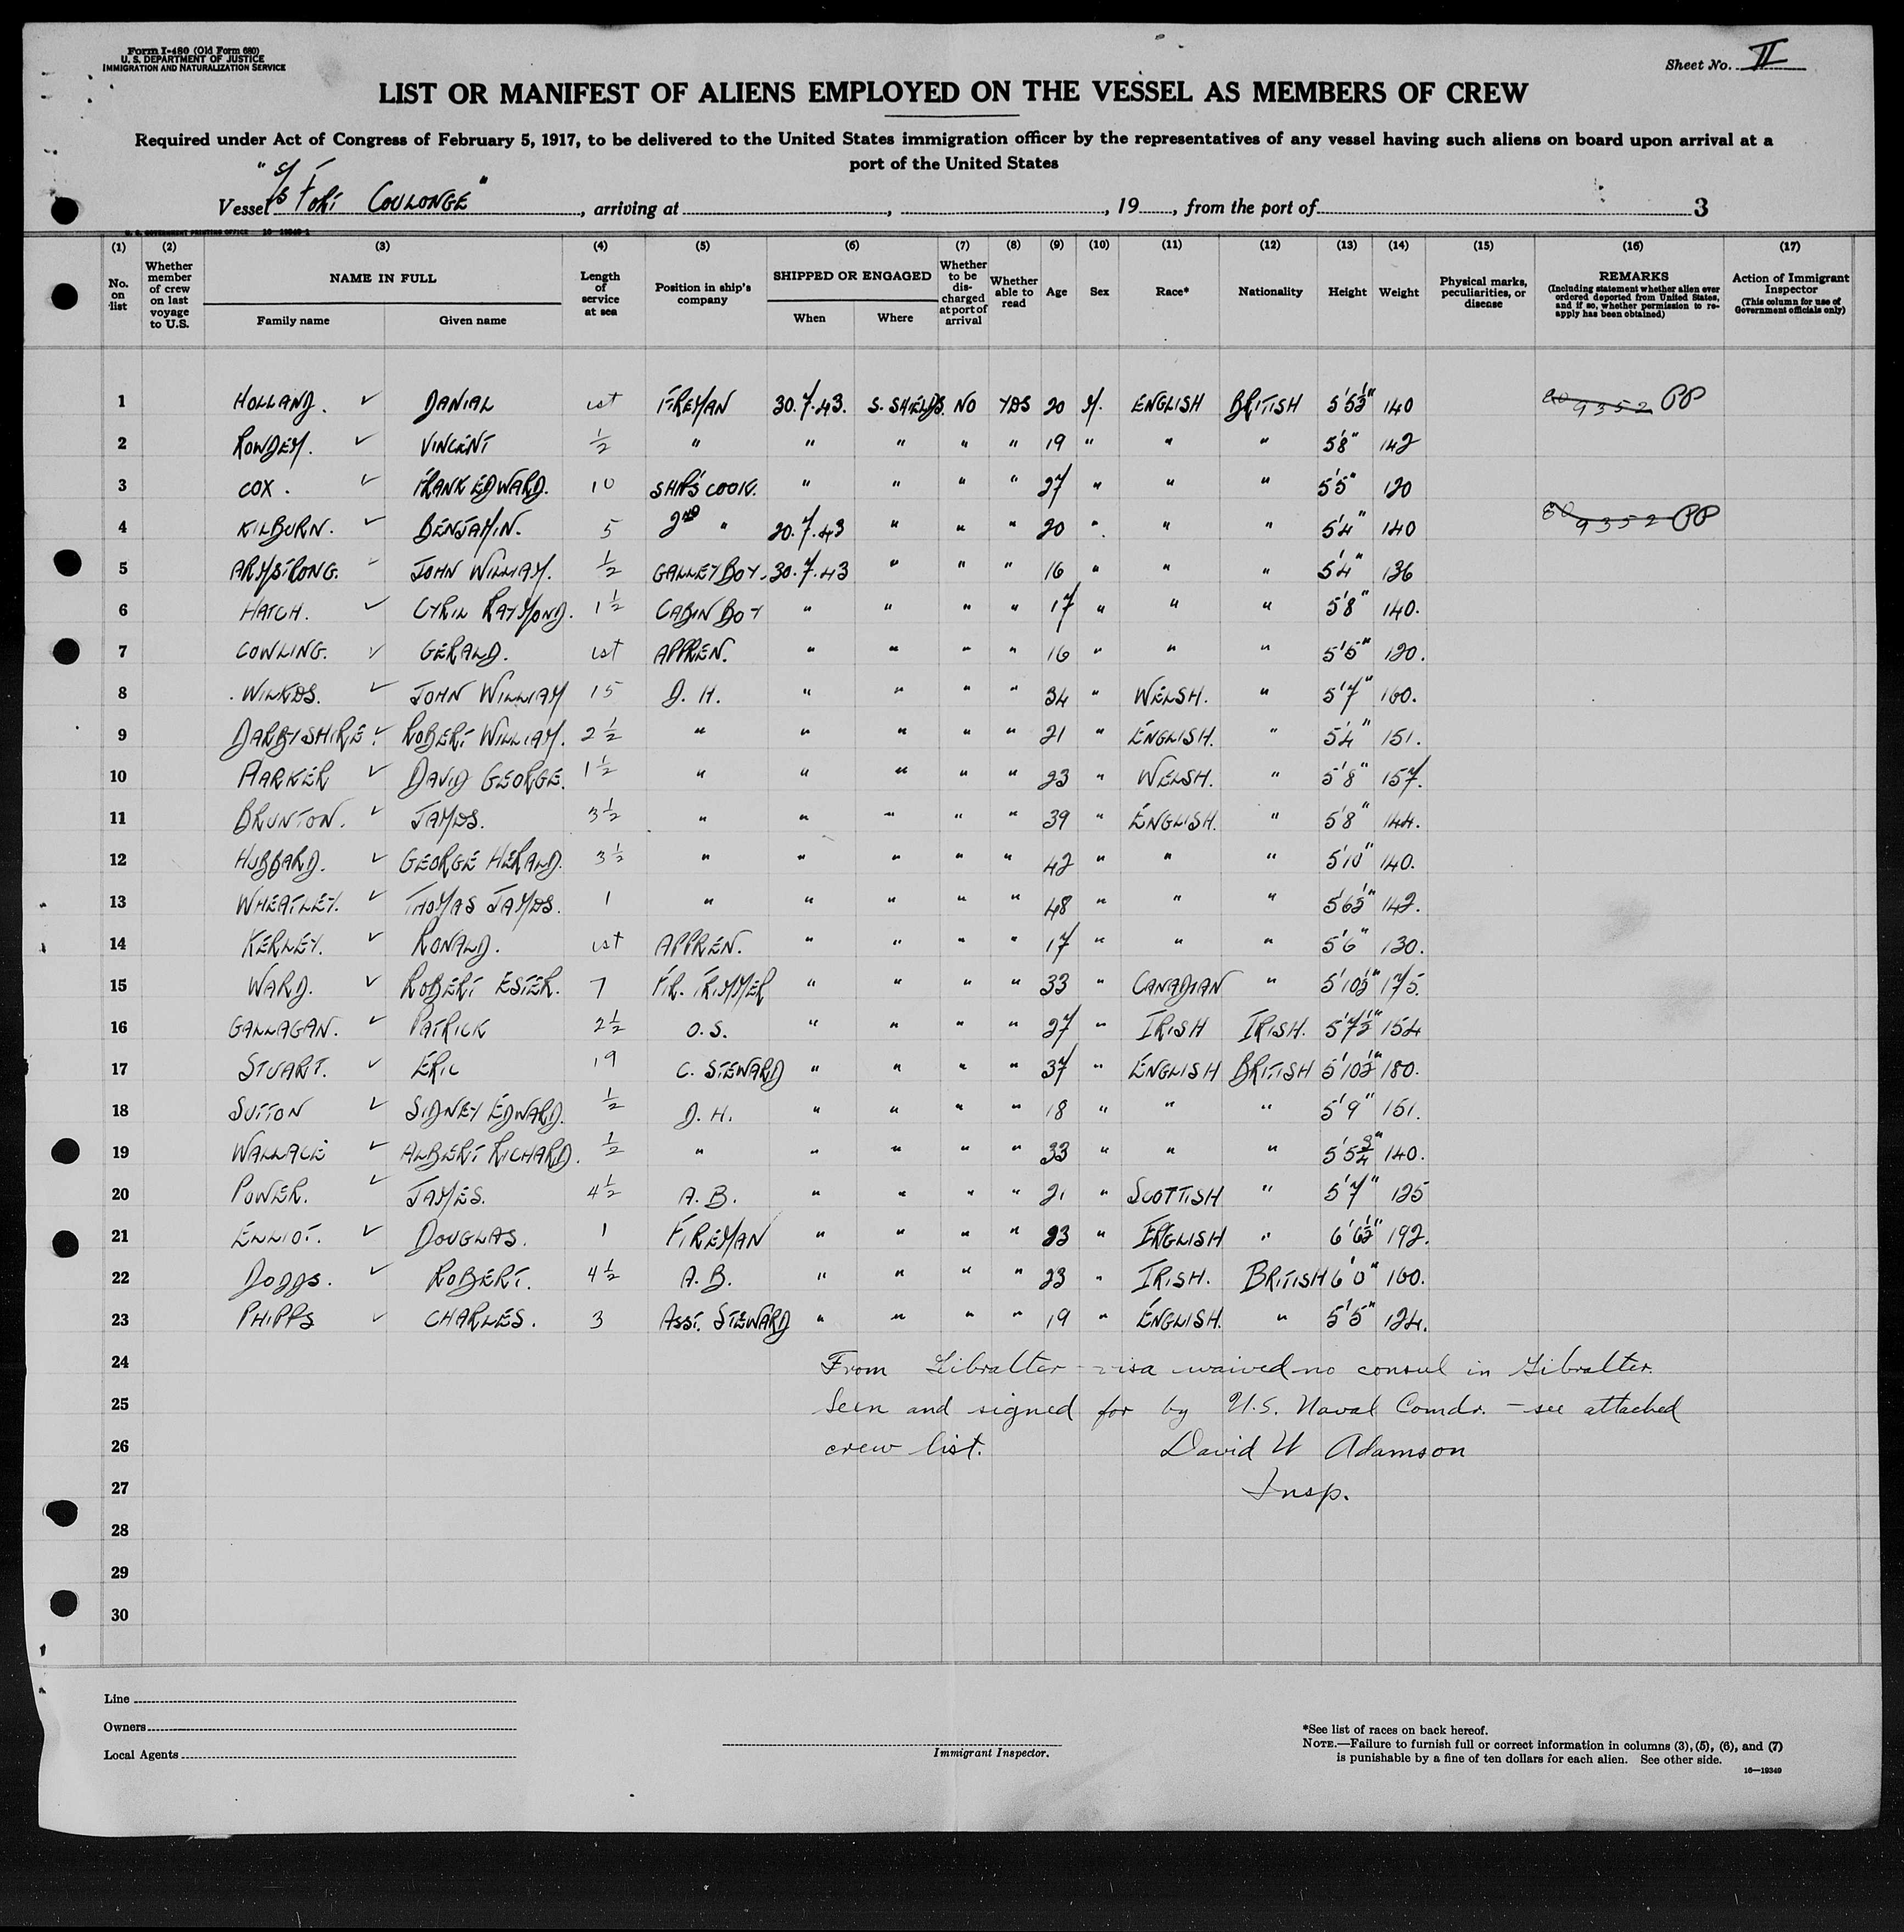 Form I-480 (Old Form 680)
U. S. DEPARTMENT OF JUSTICE
IMMIGRATION AND NATURALIZATION SERVICE
Sheet No. II
LIST OR MANIFEST OF ALIENS EMPLOYED ON THE VESSEL AS MEMBERS OF CREW
Required under Act of Congress of February 5, 1917, to be delivered to the United States immigration officer by the representatives of any vessel having such aliens on board upon arrival at a
port of the United States
Vessel "S/S Fort Coulonge", arriving at , , 19 , from the port of 3
(1) (2) (3) (4) (5) (6) (7) (8) (9) (10) (11) (12) (13) (14) (15) (16) (17)
No. on list Whether member of crew on last voyage to U.S. NAME IN FULL Family name Given name Length of service at sea Position in ship's company SHIPPED OR ENGAGED When Where Whether to be discharged at port of arrival Whether able to read Age Sex Race* Nationality Height Weight Physical marks, peculiarities, or disease REMARKS (Including statement whether alien ever ordered deported from United States, and if so, whether permission to reapply has been obtained) Action of Immigrant Inspector (This column for use of Government officials only)
1 HOLLAND. ✓ DANIAL 1st FIREMAN 30.7.43. S. SHIELDS. NO YES 20 M. ENGLISH BRITISH 5'5½" 140 9352 PP
2 ROWDEN. ✓ VINCENT ½ " " " " " 19 " " " 5'8" 142
3 COX. ✓ FRANK EDWARD. 10 SHIP'S COOK. " " " " 27 " " " 5'5" 120
4 KILBURN. ✓ BENJAMIN. 5 2nd " 20.7.43 " " " 20 " " " 5'4" 140 9352 PP
5 ARMSTRONG. ✓ JOHN WILLIAM. ½ GALLEY BOY. 30.7.43 " " " 16 " " " 5'4" 136
6 HATCH. ✓ CYRIL RAYMOND. 1½ CABIN BOY " " " " 17 " " " 5'8" 140.
7 COWLING. ✓ GERALD. 1st APPREN. " " " " 16 " " " 5'5" 120.
8 WILKES. ✓ JOHN WILLIAM 15 D. H. " " " " 34 " WELSH. " 5'7" 160.
9 DARBYSHIRE. ✓ ROBERT WILLIAM. 2½ " " " " " 21 " ENGLISH. " 5'4" 151.
10 PARKER ✓ DAVID GEORGE. 1½ " " " " " 23 " WELSH. " 5'8" 157.
11 BRUNTON. ✓ JAMES. 3½ " " " " " 39 " ENGLISH. " 5'8" 144.
12 HUBBARD. ✓ GEORGE HERALD. 3½ " " " " " 42 " " " 5'10" 140.
13 WHEATLEY. ✓ THOMAS JAMES. 1 " " " " " 48 " " " 5'6½" 142.
14 KERLEY. ✓ RONALD. 1st APPREN. " " " " 17 " " " 5'6" 130.
15 WARD. ✓ ROBERT ESTER. 7 FR. TRIMMER " " " " 33 " CANADIAN " 5'10½" 175.
16 GALLAGAN. ✓ PATRICK 2½ O.S. " " " " 27 " IRISH IRISH. 5'7½" 154
17 STUART. ✓ ERIC 19 C. STEWARD " " " " 37 " ENGLISH BRITISH 5'10½" 180.
18 SUTTON ✓ SIDNEY EDWARD. ½ D. H. " " " " 18 " " " 5'9" 151.
19 WALLACE ✓ ALBERT RICHARD. ½ " " " " " 33 " " " 5'5¾" 140.
20 POWER. ✓ JAMES. 4½ A. B. " " " " 21 " SCOTTISH " 5'7" 125
21 ELLIOT. ✓ DOUGLAS. 1 FIREMAN " " " " 23 " ENGLISH " 6'6½" 192.
22 DOGGS. ✓ ROBERT. 4½ A. B. " " " " 23 " IRISH. BRITISH 6'0" 160.
23 PHIPPS ✓ CHARLES. 3 ASST. STEWARD " " " " 19 " ENGLISH. " 5'5" 124.
24 From Gibralter - visa waived no consul in Gibralter.
25 Seen and signed for by U.S. Naval Comdr. - see attached
26 crew list. David W Adamson
27 Insp.
28
29
30
Line
Owners
Local Agents
Immigrant Inspector.
*See list of races on back hereof.
NOTE.—Failure to furnish full or correct information in columns (3), (5), (6), and (7)
is punishable by a fine of ten dollars for each alien. See other side.
16—19349